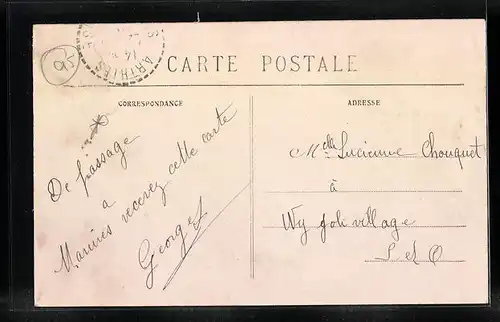 95
ARTHIES
14
CARTE POSTALE
CORRESPONDANCE
De passage
à
Marines recevez cette carte
Georges
ADRESSE
Melle Lucienne Chouquet
à
Wy joli village
S et O